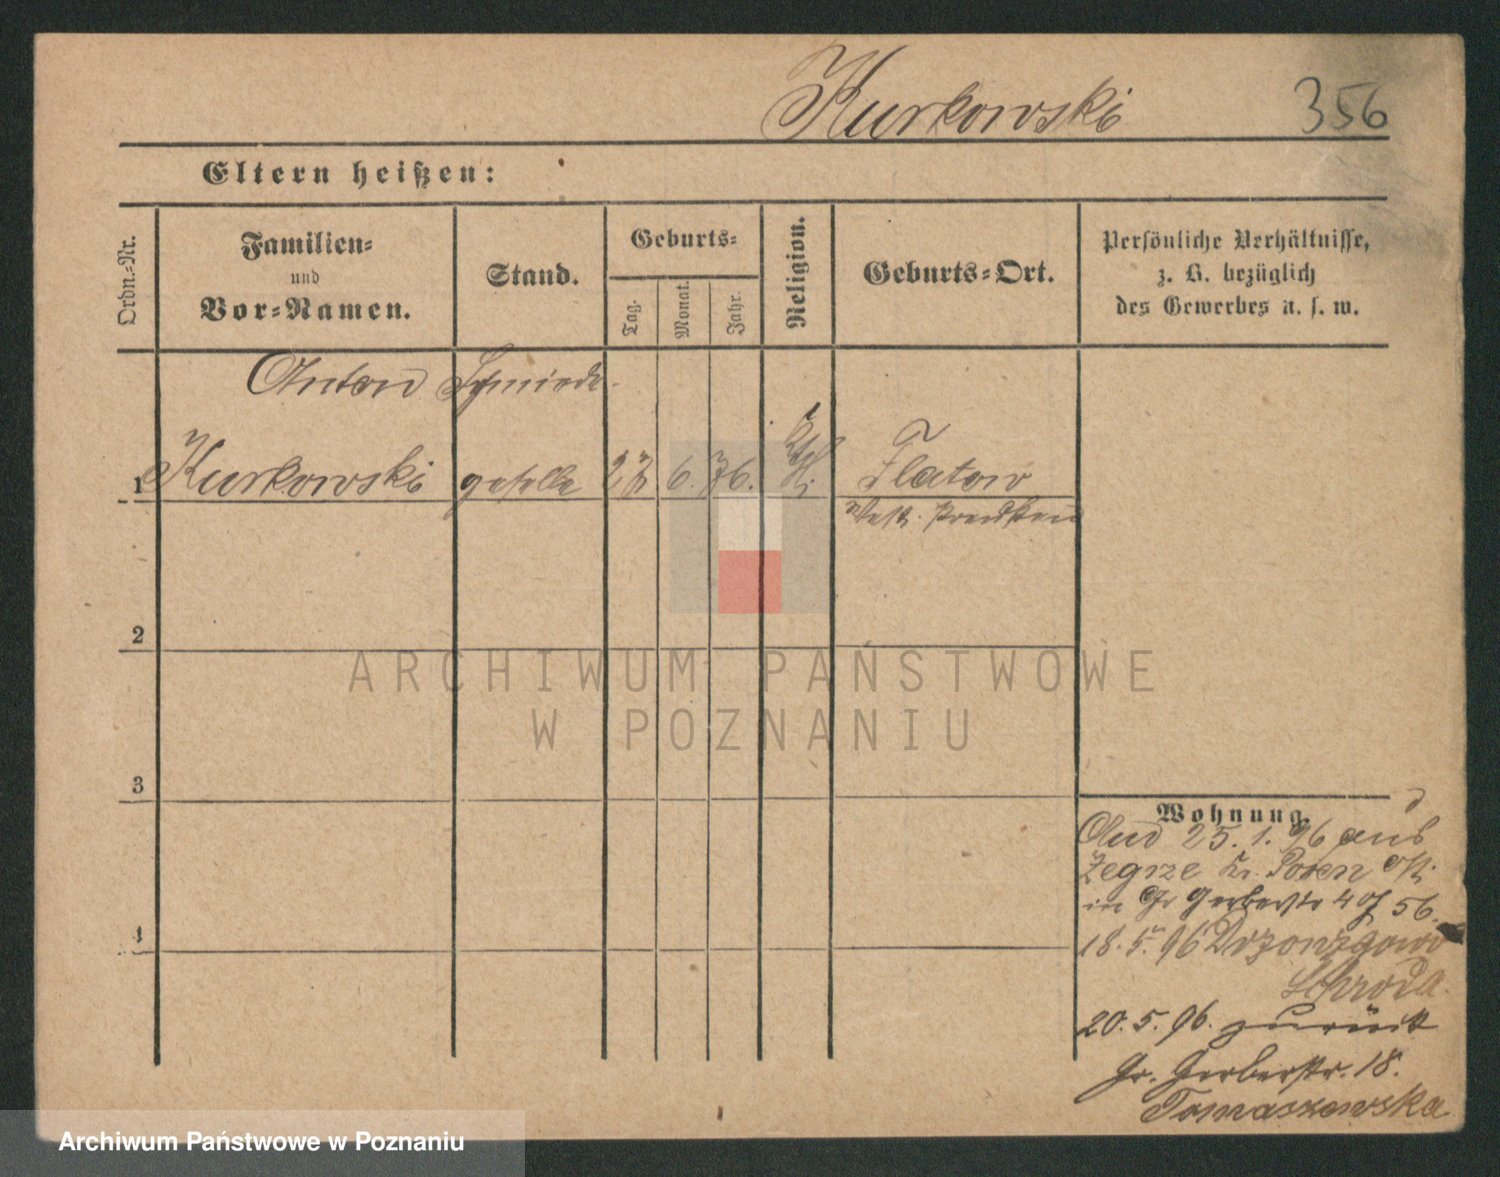 Kurkowski 356
Eltern heißen:
Ordn.-Nr.
Familien-
und
Vor-Namen.
Stand.
Geburts-
Tag.
Monat.
Jahr.
Religion.
Geburts-Ort.
Persönliche Verhältnisse,
z. B. bezüglich
des Gewerbes u. s. w.
Anton Schmiede-
1 Kurkowski geselle 27 6. 76. Kth. Flatow
West. Preußen
2
3
4
Wohnung.
25. 1. 96 aus
Żegrze Kr. Posen
in Gr Gerberstr 40
18. 5. 96
Schroda.
20. 5. 96. zurück
Gr. Gerberstr. 18.
Tomaszewska
ARCHIWUM PAŃSTWOWE
W POZNANIU
Archiwum Państwowe w Poznaniu